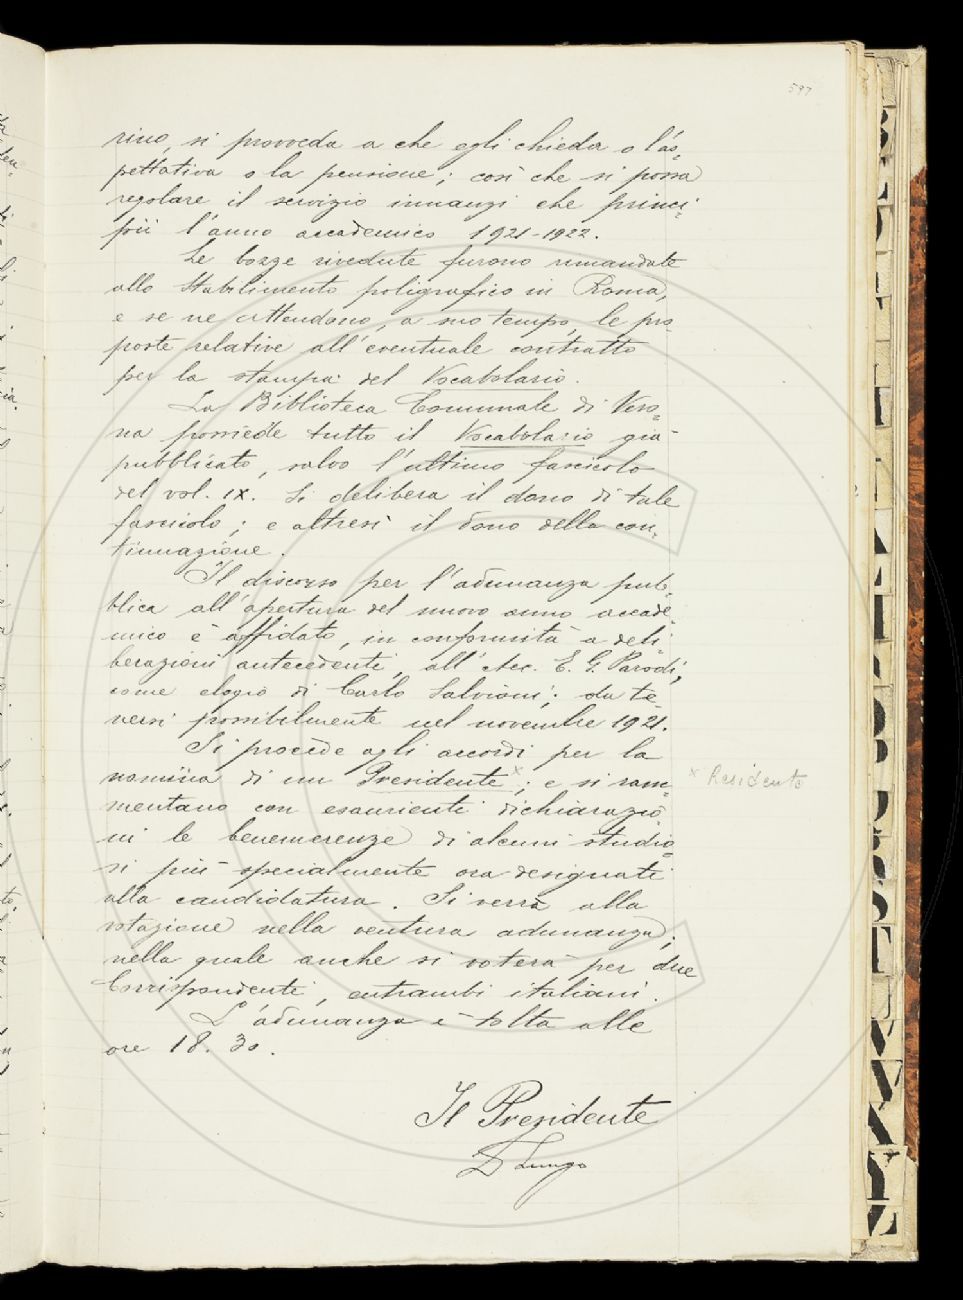 597
rino, si provveda a che egli chieda o l'as=
pettativa o la pensione; così che si possa
regolare il servizio innanzi che princi=
pii l'anno accademico 1921-1922.
Le bozze rivedute furono rimandate
allo Stabilimento poligrafico in Roma,
e se ne attendono, a suo tempo, le pro=
poste relative all'eventuale contratto
per la stampa del Vocabolario.
La Biblioteca Comunale di Vero=
na possiede tutto il Vocabolario già
pubblicato, salvo l'ultimo fascicolo
del vol. IX. Si delibera il dono di tale
fascicolo; e altresì il dono della con=
tinuazione.
Il discorso per l'adunanza pub=
blica all'apertura del nuovo anno accade=
mico è affidato, in conformità a deli=
berazioni antecedenti, all'Acc. E. G. Parodi,
come elogio di Carlo Salvioni; da te=
nersi possibilmente nel novembre 1921.
Si procede agli accordi per la
nomina di un Presidente x; e si ram=
x Residente
mentano con esaurienti dichiarazio=
ni le benemerenze di alcuni studio=
si più specialmente ora designati
alla candidatura. Si verrà alla
votazione nella ventura adunanza;
nella quale anche si voterà per due
Corrispondenti, entrambi italiani.
L'adunanza è tolta alle
ore 18.30.
Il Presidente
D Lungo
B
D
R
S
T
V
X
Y
Z